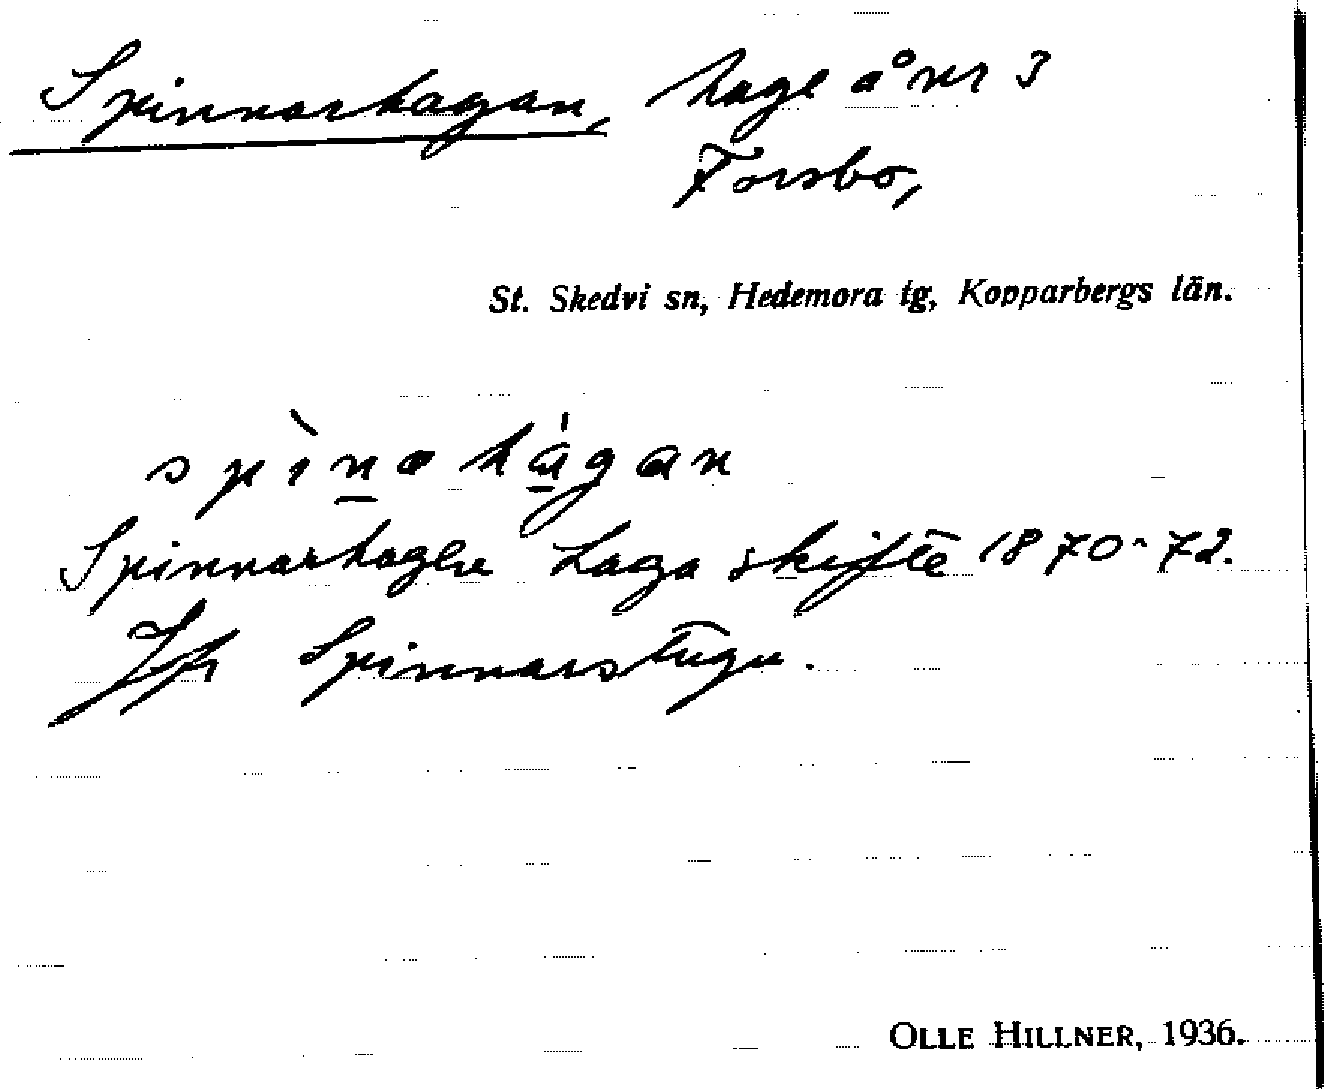 Spinnarhagan, hage å nr 3
Forsbo,
St. Skedvi sn, Hedemora tg, Kopparbergs län.
spìna hágan
Spinnarhagen Laga skifte 1870-72.
Jfr Spinnarstugu.
OLLE HILLNER, 1936.